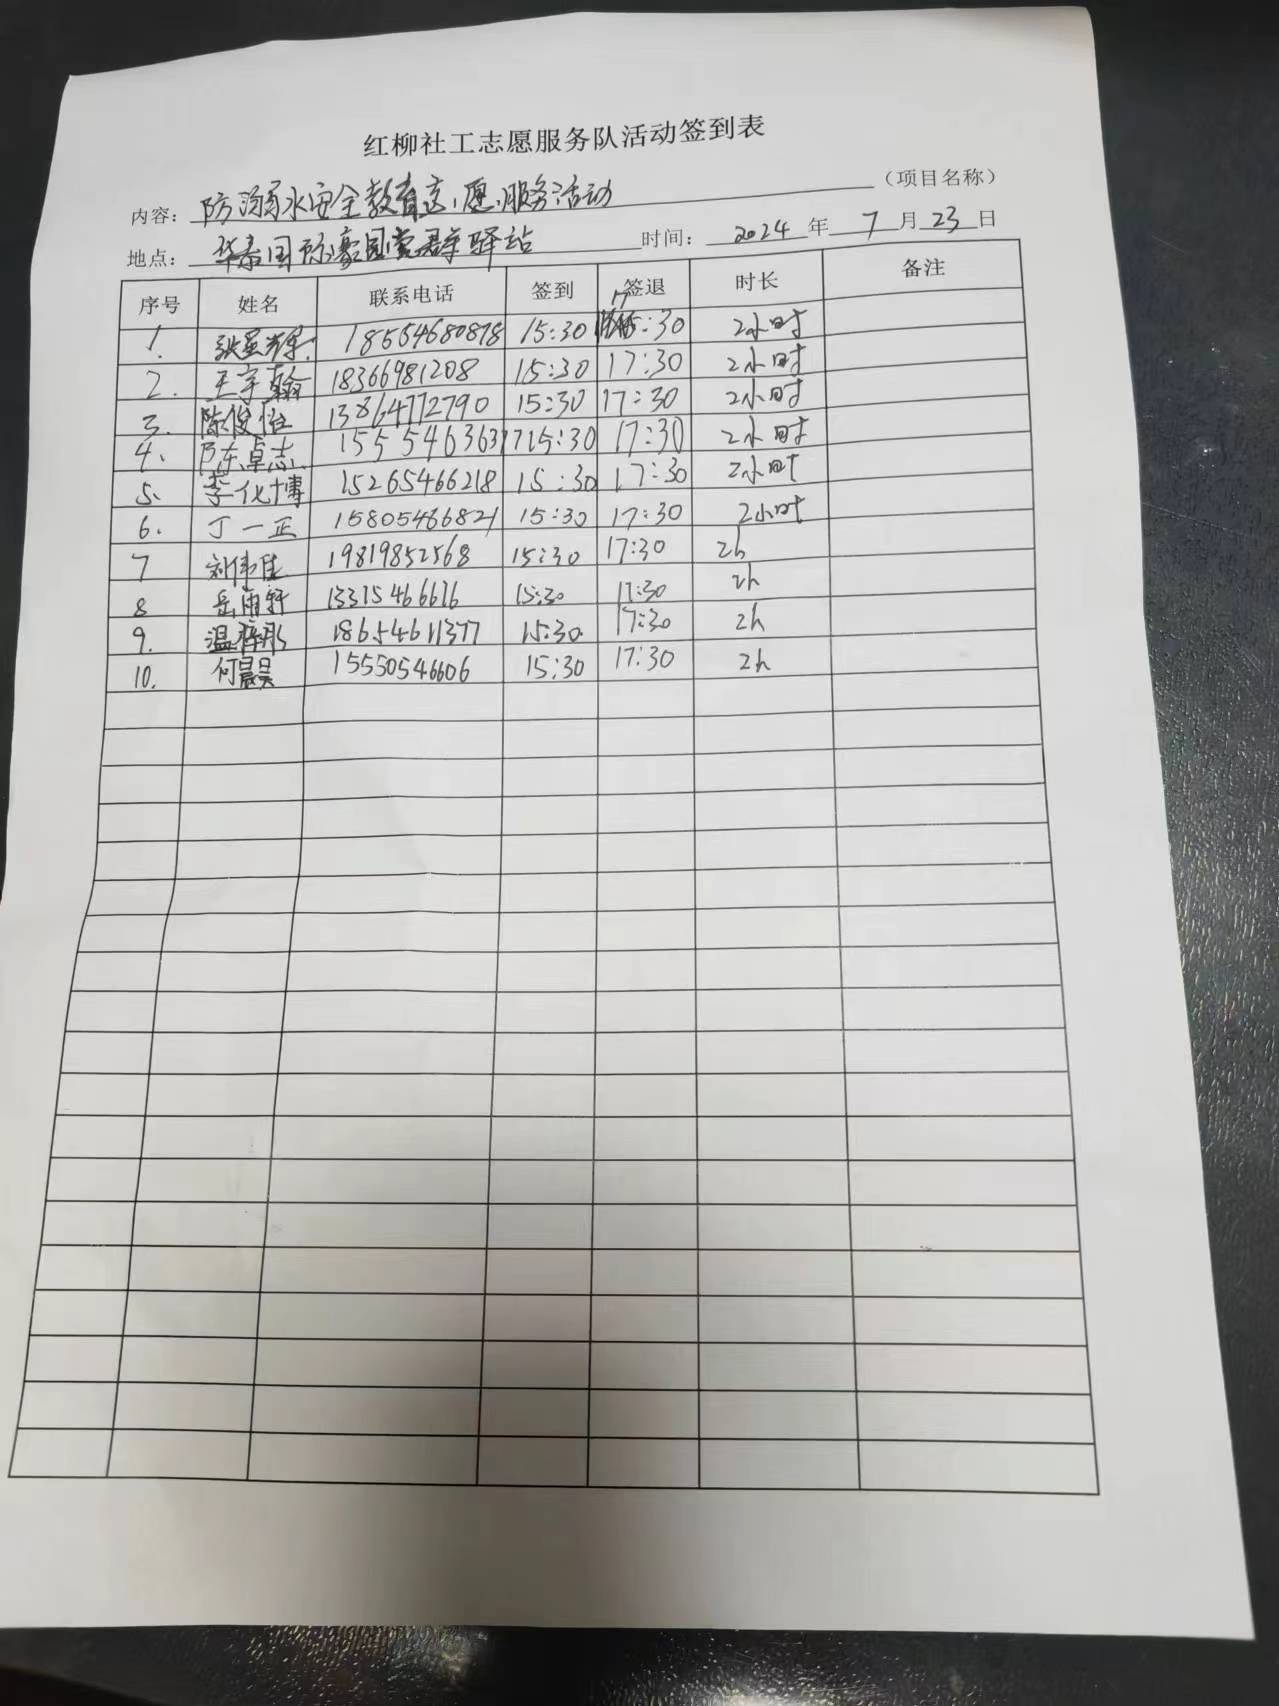 红柳社工志愿服务队活动签到表
内容: 防溺水安全教育志愿服务活动 (项目名称)
地点: 华泰国际豪园党群驿站 时间: 2024 年 7 月 23 日
序号 姓名 联系电话 签到 签退 时长 备注
1. 18554680878 15:30 17:30 2小时
2. 王宇翰 18366981208 15:30 17:30 2小时
3. 陈俊怡 13864772790 15:30 17:30 2小时
4. 陈卓志 15554636317 15:30 17:30 2小时
5. 李化博 15265466218 15:30 17:30 2小时
6. 丁一正 15805466821 15:30 17:30 2小时
7 刘伟佳 19819852568 15:30 17:30 2h
8 岳雨轩 13315466616 15:30 17:30 2h
9. 温梓彤 18654611377 15:30 17:30 2h
10. 何晨昊 15550546606 15:30 17:30 2h